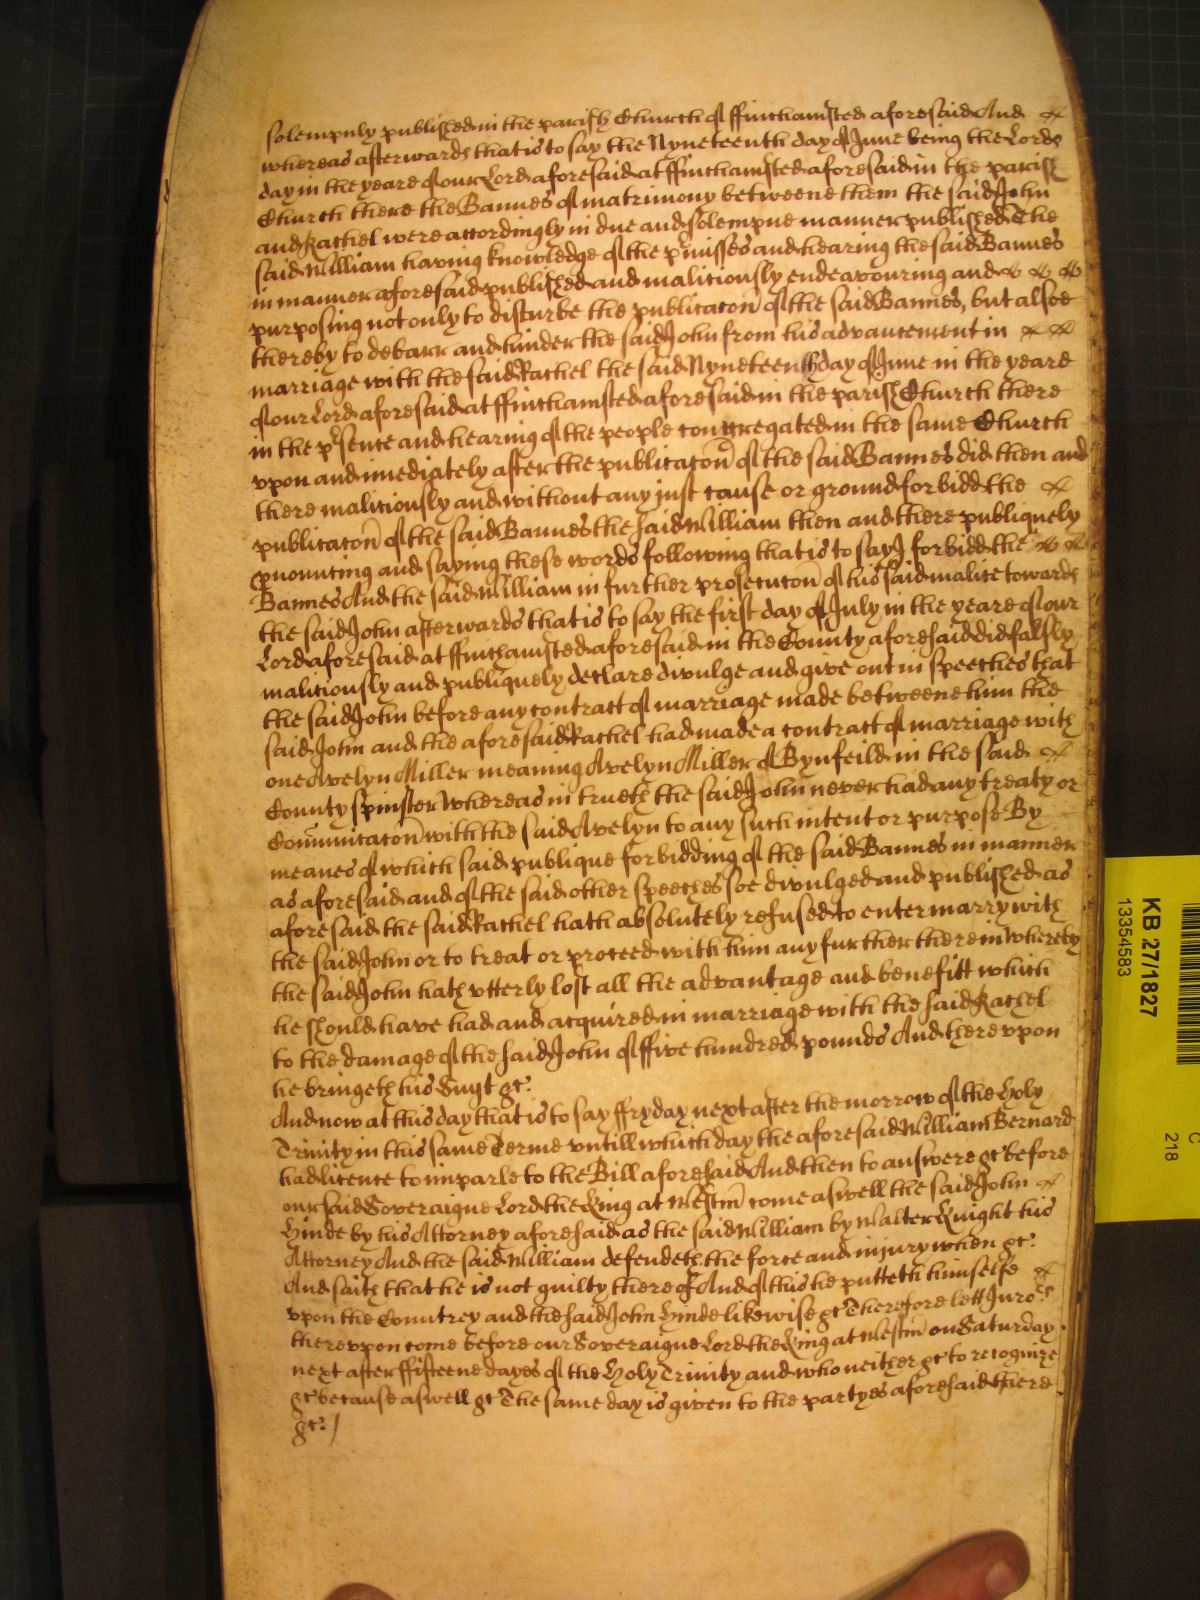 solempnly published in the parish Church of ffinchamsted aforesaid And
whereas afterwards that is to say the Nyneteenth day of June being the Lords
day in the yeare of our Lord aforesaid at ffinchamsted aforesaid in the parish
Church there the Bannes of matrimony betweene them the said John
and Rachel were accordingly in due and solempne manner published The
said William having knowledge of the pmisses and hearing the said Bannes
in manner aforesaid published and malitiously endeavouring and
purposing not only to disturbe the publicacon of the said Bannes, but alsoe
thereby to debarr and hinder the said John from his advancement in
marriage with the said Rachel the said Nyneteenth day of June in the yeare
of our Lord aforesaid at ffinchamsted aforesaid in the parish Church there
in the psence and hearing of the people congregated in the same Church
upon and imediately after the publicacon of the said Bannes did then and
there malitiously and without any just cause or ground forbidd the
publicacon of the said Bannes the said William then and there publiquely
pnouncing and saying these words following that is to say I forbidd the
Bannes And the said William in further prosecucon of his said malice towards
the said John afterwards that is to say the first day of July in the yeare of our
Lord aforesaid at ffinchamsted aforesaid in the County aforesaid did falsly
malitiously and publiquely declare divulge and give out in speeches that
the said John before any contract of marriage made betweene him the
said John and the aforesaid Rachel had made a contract of marriage with
one Avelyn Miller meaning Avelyn Miller of Bynfeild in the said
County spinster Whereas in trueth the said John never had any treaty or
Comunicacon with the said Avelyn to any such intent or purpose By
meanes of which said publique forbidding of the said Bannes in manner
as aforesaid and of the said other speeches soe divulged and published as
aforesaid the said Rachel hath absolutely refused to entermarry with
the said John or to treat or proceed with him any further therein Whereby
the said John hath utterly lost all the advantage and benefitt which
he should have had and acquired in marriage with the said Rachel
to the damage of the said John of ffive hundred pounds And thereupon
he bringeth his Suyt &c.
And now at this day that is to say ffryday next after the morrow of the Holy
Trinity in this same Terme untill which day the aforesaid William Bernard
had licence to imparle to the Bill aforesaid And then to answere &c before
our said Soveraigne Lord the King at Westm come aswell the said John
Hinde by his Attorney aforesaid as the said William by Walter Knight his
Attorney And the said William defendeth the force and injury when &c.
And saith that he is not guilty thereof And of this he putteth himselfe
upon the Countrey and the said John Hinde likewise &c Therefore lett Juro.s
thereupon come before our Soveraigne Lord the King at Westm on Saturday
next after ffifteene dayes of the Holy Trinity and who neither &c to recognize
&c because aswell &c The same day is given to the partyes aforesaid there
&c. /
KB 27/1827
13354583
218